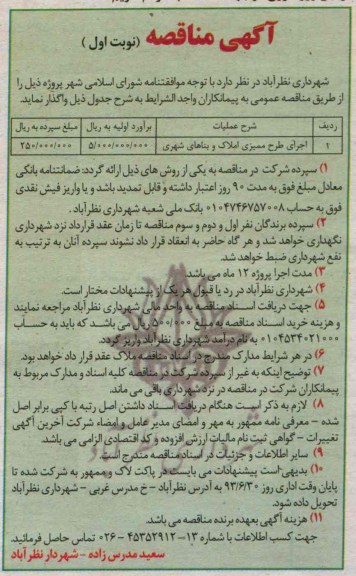 آگهی مناقصه (نوبت اول)
شهرداری نظرآباد در نظر دارد با توجه موافقتنامه شورای اسلامی شهر پروژه ذیل را
از طریق مناقصه عمومی به پیمانکاران واجد الشرایط به شرح جدول ذیل واگذار نماید.
ردیف شرح عملیات برآورد اولیه به ریال مبلغ سپرده به ریال
۱ اجرای طرح ممیزی املاک و بناهای شهری ۵/۰۰۰/۰۰۰/۰۰۰ ۲۵۰/۰۰۰/۰۰۰
۱) سپرده شرکت در مناقصه به یکی از روش های ذیل ارائه گردد: ضمانتنامه بانکی
معادل مبلغ فوق به مدت ۹۰ روز اعتبار داشته و قابل تمدید باشد و یا واریز فیش نقدی
فوق به حساب ۰۱۰۴۷۴۶۷۵۷۰۰۸ بانک ملی شعبه شهرداری نظرآباد.
۲) سپرده برندگان نفر اول و دوم و سوم مناقصه تا زمان عقد قرارداد نزد شهرداری
نگهداری خواهد شد و هر گاه حاضر به انعقاد قرار داد نشوند سپرده آنان به ترتیب به
نفع شهرداری ضبط خواهد شد.
۳) مدت اجرا پروژه ۱۲ ماه می باشد.
۴) شهرداری نظرآباد در رد یا قبول هر یک از پیشنهادات مختار است.
۵) جهت دریافت اسناد مناقصه به واحد مالی شهرداری نظرآباد مراجعه نمایند
و هزینه خرید اسناد مناقصه به مبلغ ۵۰۰/۰۰۰ ریال می باشد که باید به حساب
۰۱۰۴۵۳۴۰۲۱۰۰۰ به نام درآمد شهرداری نظرآباد واریز گردد.
۶) در هر شرایط مدارک مندرج در اسناد مناقصه ملاک عقد قرار داد خواهد بود.
۷) توضیح اینکه به غیر از سپرده شرکت در مناقصه کلیه اسناد و مدارک مربوط به
پیمانکاران شرکت در مناقصه در نزد شهرداری باقی می ماند.
۸) لازم به ذکر است هنگام دریافت اسناد داشتن اصل رتبه یا کپی برابر اصل
شده - معرفی نامه ممهور به مهر و امضای مدیر عامل و امضاء شرکت آخرین آگهی
تغییرات - گواهی ثبت نام مالیات ارزش افزوده و کد اقتصادی الزامی می باشد.
۹) سایر اطلاعات و جزئیات در اسناد مناقصه مندرج است.
۱۰) بدیهی است پیشنهادات می بایست در پاکت لاک و ممهور به شرکت شده تا
پایان وقت اداری روز ۹۳/۶/۳۰ به آدرس نظرآباد - خ مدرس غربی - شهرداری نظرآباد
تحویل داده شود.
۱۱) هزینه آگهی بعهده برنده مناقصه می باشد.
جهت کسب اطلاعات با شماره ۱۳-۴۵۳۵۲۹۱۲-۰۲۶ تماس حاصل فرمائید.
سعید مدرس زاده - شهردار نظرآباد